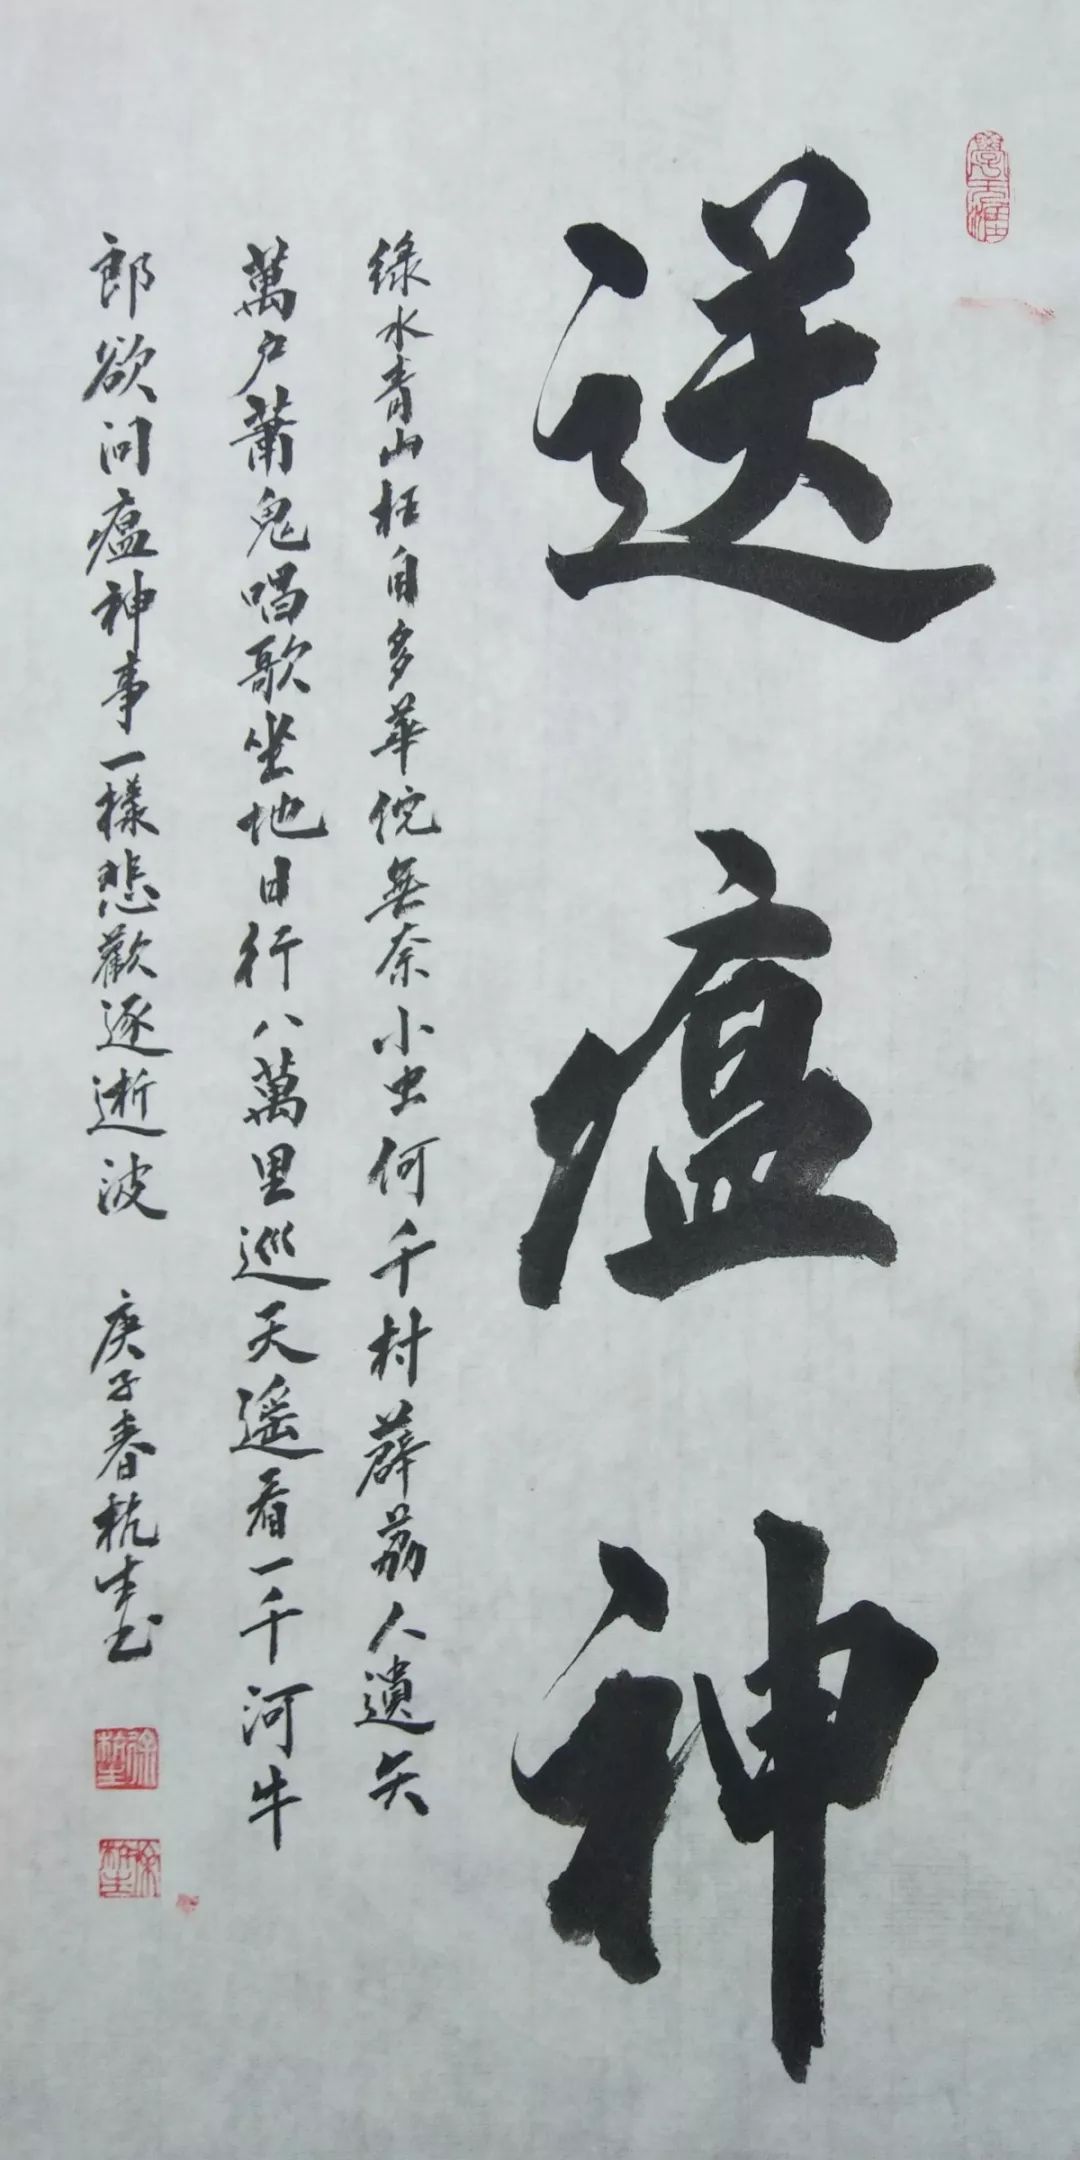 送瘟神
綠水青山枉自多華佗無奈小虫何千村薜荔人遺矢
萬户蕭鬼唱歌坐地日行八萬里巡天遥看一千河牛
郎欲问瘟神事一樣悲歡逐逝波
庚子春杭生书